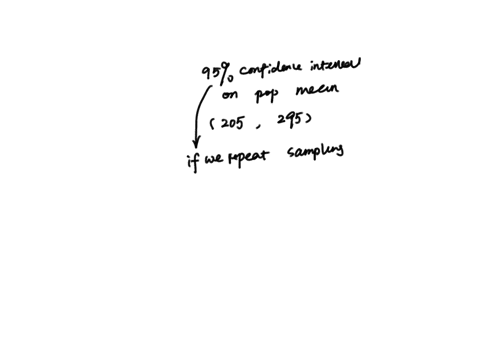 95% confidence interval
on pop mean
(205, 295)
if we repeat sampling